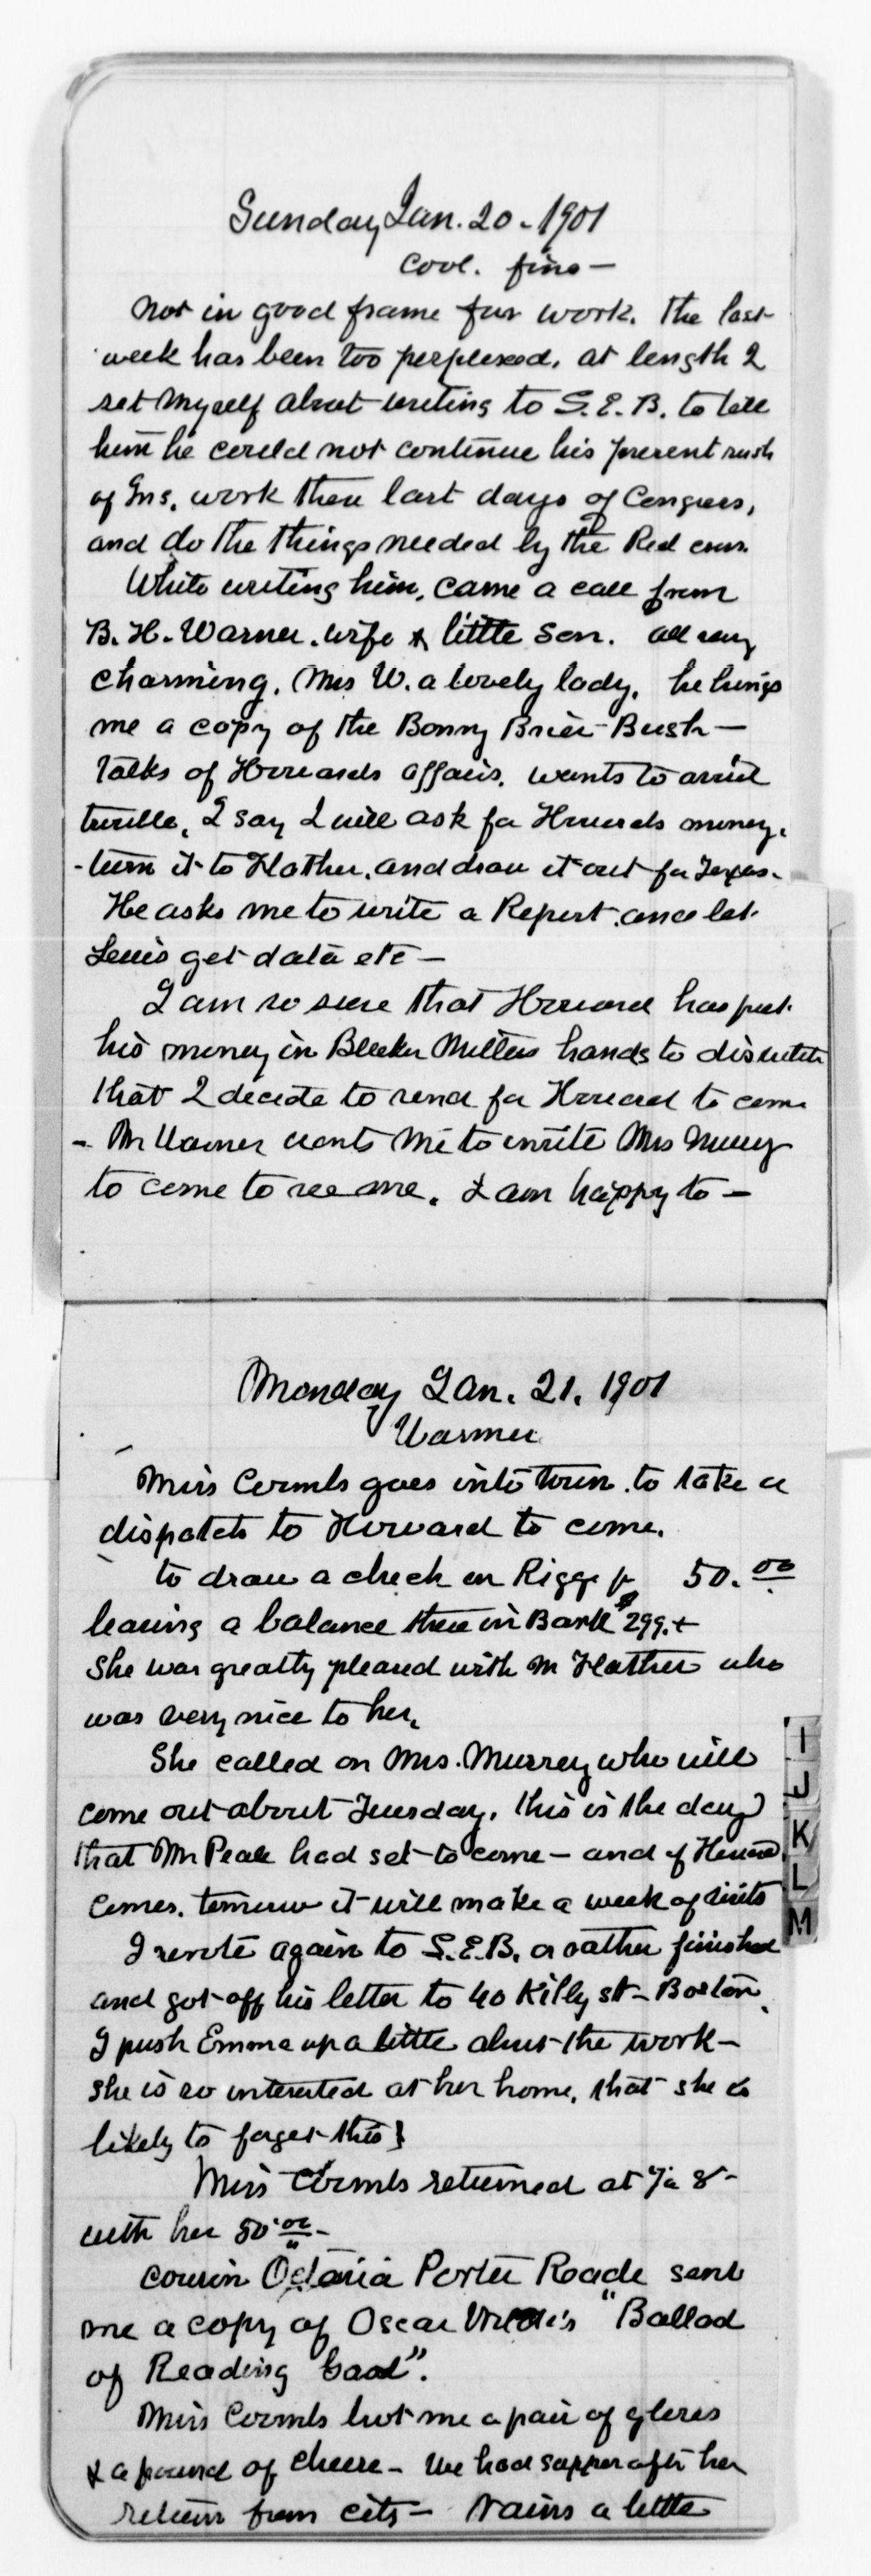 Sunday Jan. 20 - 1901
Cool. fine —
Not in good frame for work. The last
week has been too perplexed. at length I
set myself about writing to S. E. B. to tell
him he could not continue his present rush
of Ins. work these last days of Congress,
and do the things needed by the Red cross.
While writing him, came a call from
B. H. Warner. wife & little son. all very
charming. Mrs W. a lovely lady. he brings
me a copy of the Bonny Brier Bush —
talks of Howards affairs. wants to avoid
trouble. I say I will ask for Howards money.
- turn it to Flather. and draw it out for Texas.
He asks me to write a Report. and let
Lewis get data etc —
I am so sure that Howard has put
his money in Bleeker Millers hands to distribute
that I decide to send for Howard to come
- Mr Warner wants me to invite Mrs Murrey
to come to see me. I am happy to —
Monday Jan. 21. 1901
Warmer
Miss Coombs goes into town. to take a
dispatch to Howard to come.
to draw a check on Riggs for 50.00
leaving a balance there in Bank $299.+
She was greatly pleased with Mr Flather who
was very nice to her.
She called on Mrs. Murrey who will
come out about Tuesday. this is the day
that Mr Peak had set to come — and if Howard
comes. tomorrow it will make a week of visits
I wrote again to S. E. B. or rather finished
and got off his letter to 40 Kilby st - Boston.
I push Emma up a little about the work —
she is so interested at her home. that she is
likely to forget this
Miss Coombs returned at 7 a 8 -
with her 50 00 -
Cousin Octavia Porter Reade sent
me a copy of Oscar Wilde's "Ballad
of Reading Gaol".
Miss Coombs bot me a pair of gloves
& a pound of cheese - We had supper after her
return from city - rains a little